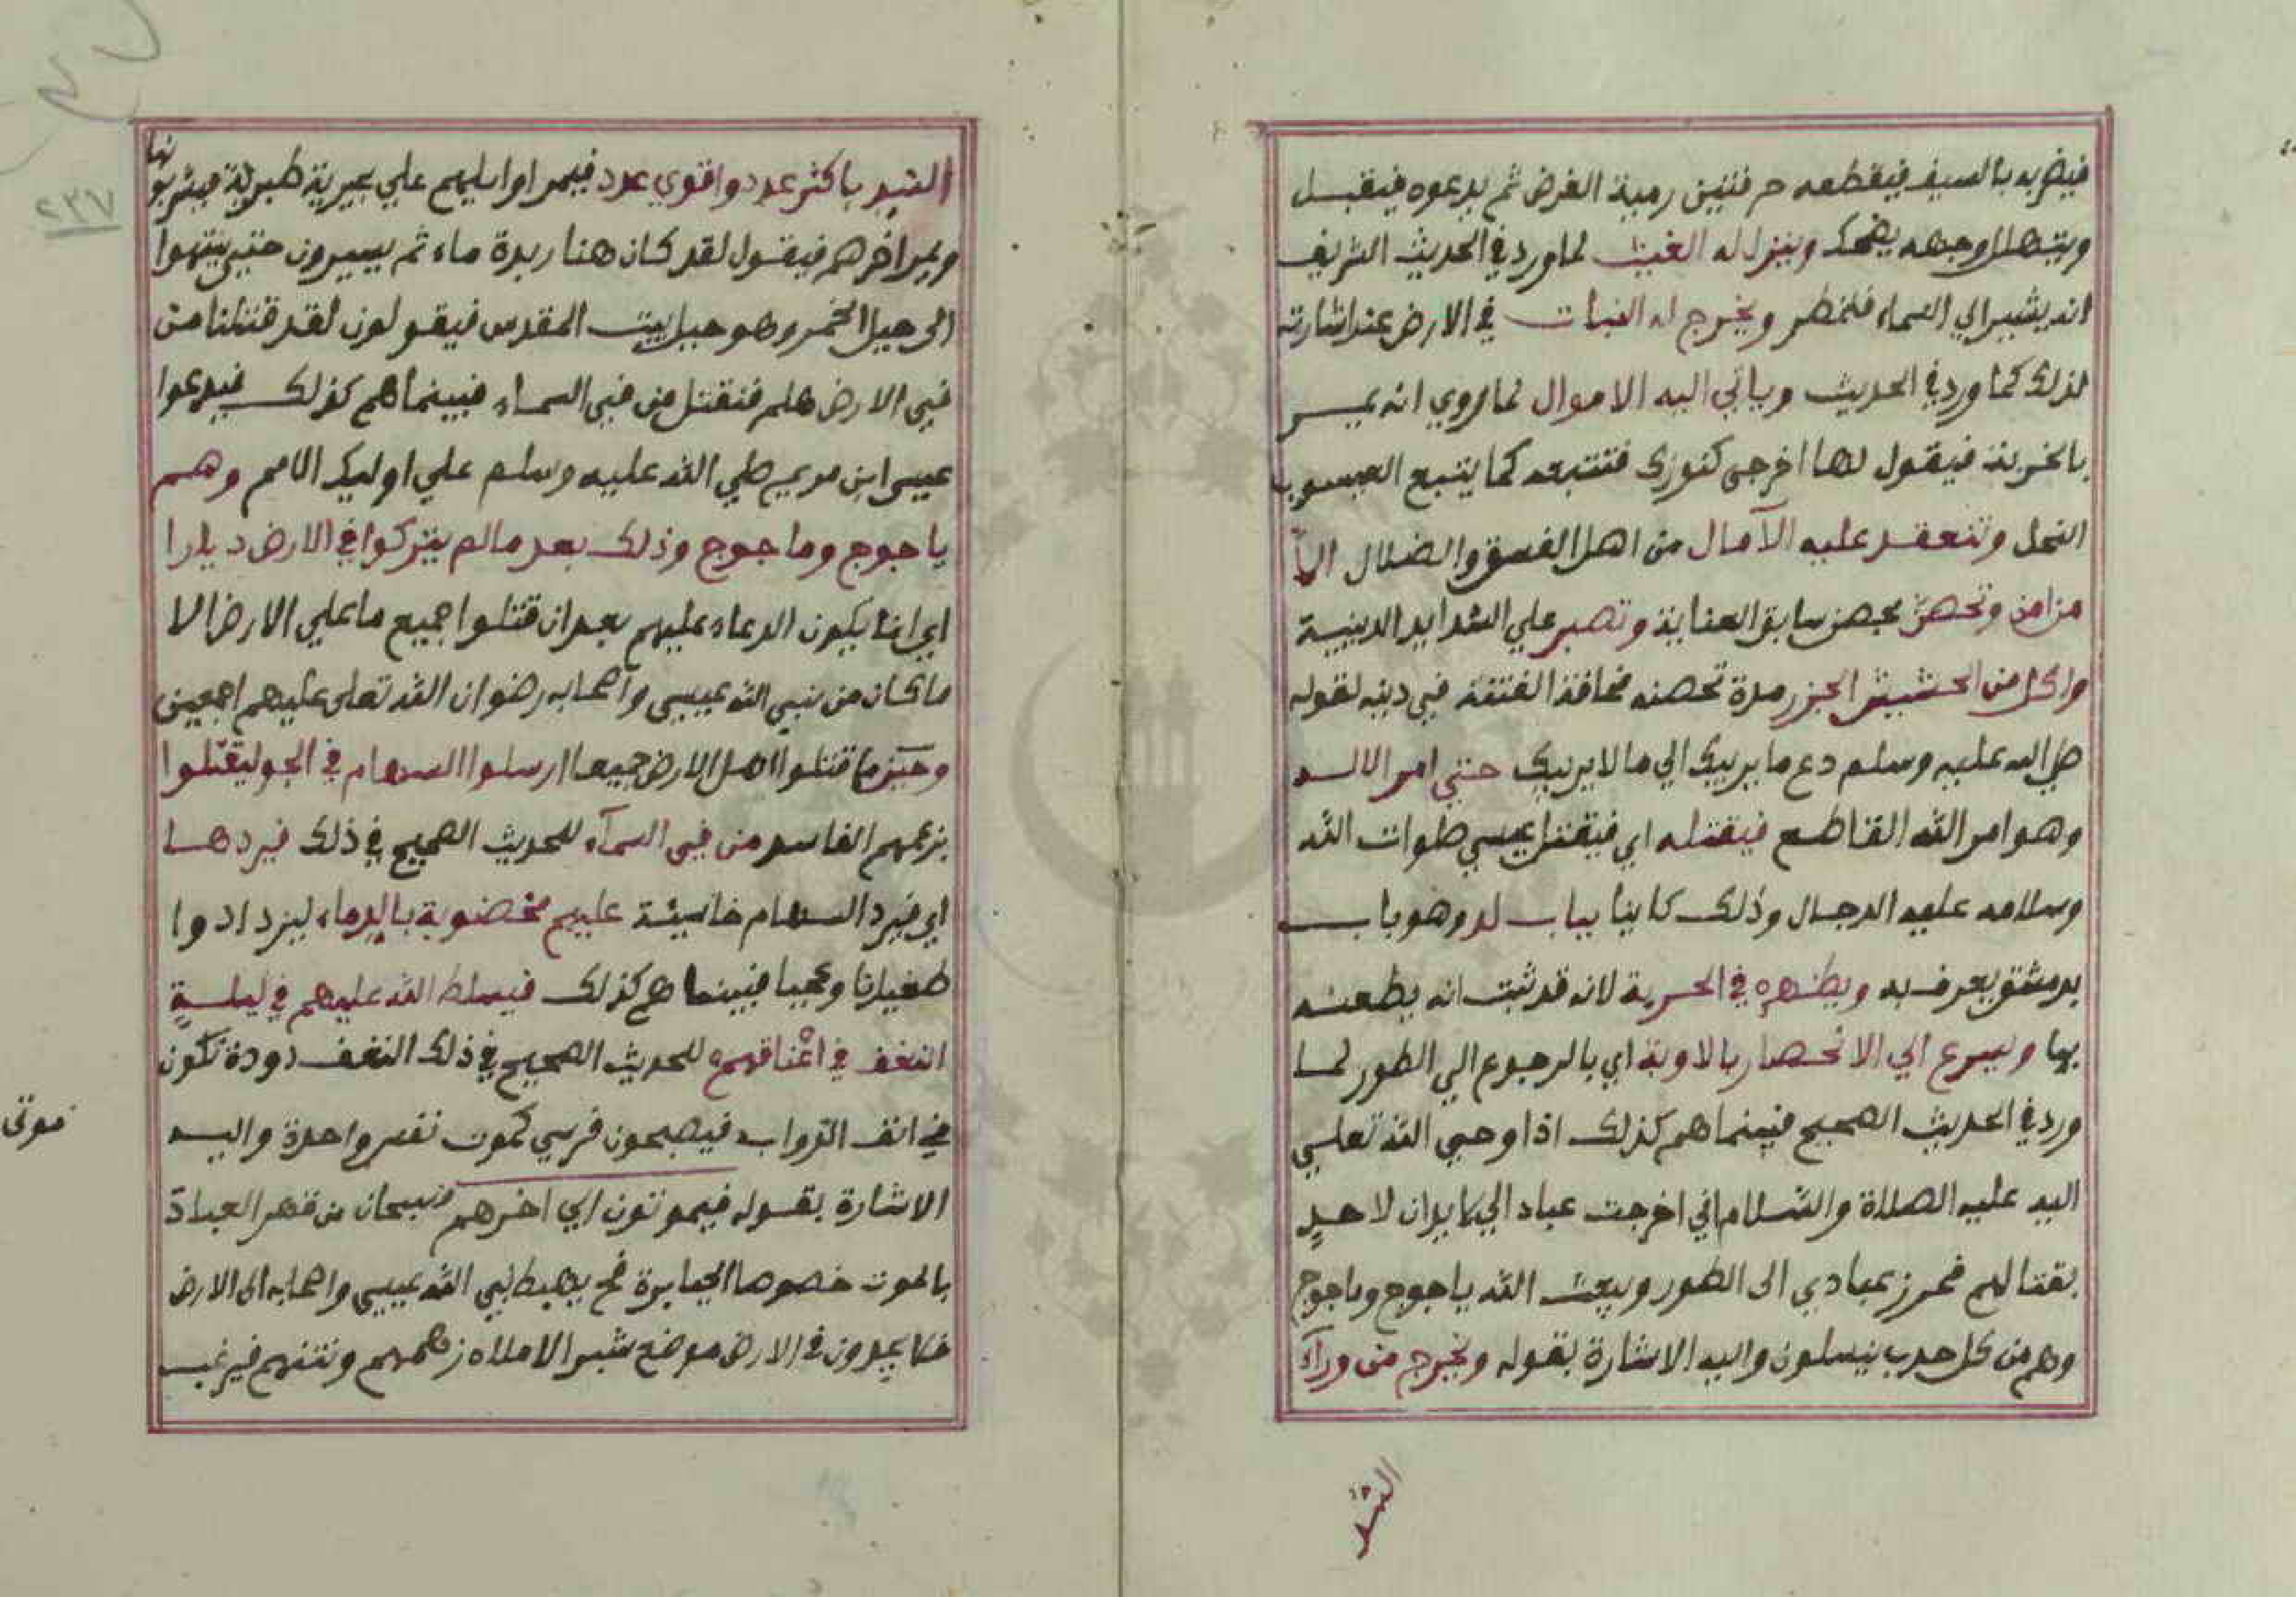 فيضربه بالسيف فيقطعه جزلتين رمية الغرض ثم يدعوه فيقبل
ويتهلل وجهه يضحك وينزل له الغيث لما ورد في الحديث الشريف
انه يشير الي السماء فتمطر ويخرج له النبات في الارض عند اشارته
لذلك كما ورد في الحديث وياتي اليه الاموال لما روي انه يمر
بالخربة فيقول لها اخرجي كنوزك فتتبعه كما يتبع اليعسوب
النحل وتنعقد عليه الآمال من اهل الفسق والضلال الا
من امن وتحصن بحصن سابق العناية وتصبر علي الشدايد الدينية
واكل من الحشيش الجزر مدة تحصنه مخافة الفتنة في دينه لقوله
صلي الله عليه وسلم دع ما يريبك الي ما لا يريبك حتي امر الاله
وهو امر الله القاطع فيقتله اي فيقتل عيسي صلوات الله
وسلامه عليه الدجال وذلك كاينا بباب لد وهو باب
بدمشق يعرف به ويظهره في الحربة لانه قد ثبت انه يطعنه
بها ويسرع الي الانحصار بالاوبة اي بالرجوع الي الطور لما
ورد في الحديث الصحيح فبينما هم كذلك اذا وحي الله تعلي
اليه عليه الصلاة والسلام اني اخرجت عباد الي لا يدان لاحد
بقتالهم فحرز عبادي الى الطور ويبعث الله ياجوج وماجوج
وهم من كل حدب ينسلون واليه الاشارة بقوله ويخرج من ورآء
السد
٢٣٧
السد باكثر عدد واقوي عدد فيمر اوايلهم علي بحيرية طبرية فيشربونها
ويمر اخرهم فيقول لقد كان هنا ربدة ماء ثم يسيرون حتي ينتهوا
الى جبل الخمر وهو جبل بيت المقدس فيقولون لقد قتلنا من
في الارض هلم فنقتل من في السماء فبينما هم كذلك فيدعوا
عيسى ابن مريم صلي الله عليه وسلم علي اوليك الامم وهم
ياجوج وماجوج وذلك بعد مالم يتركوا في الارض ديارا
اي انما يكون الدعاء عليهم بعد ان قتلوا جميع ما علي الارض الا
ما كان من نبي الله عيسى واصحابه رضوان الله تعلى عليهم اجمعين
وحين ما قتلوا اهل الارض جميعا ارسلوا السهام في الجو ليقتلوا
بزعمهم الفاسد من في السمآء للحديث الصحيح في ذلك فيردها
اي فيرد السهام خاسئة عليهم مخضوبة بالدماء ليزدادوا
طغيانا وعجبا فبينما هم كذلك فيسلط الله عليهم في ليلة
النغف في اعناقهم للحديث الصحيح في ذلك النغف دودة تكون
في انف الدواب فيصبحون فرسي كموت نفس واحدة واليه
موتى
الاشارة بقوله فيموتون اي اخرهم فسبحان من قهر العباد
بالموت خصوصا الجبابرة ثم يهبط نبي الله عيسى واصحابه الى الارض
فلا يجدون في الارض موضع شبر الا ملاه زهمهم ونتنهم فيرغب